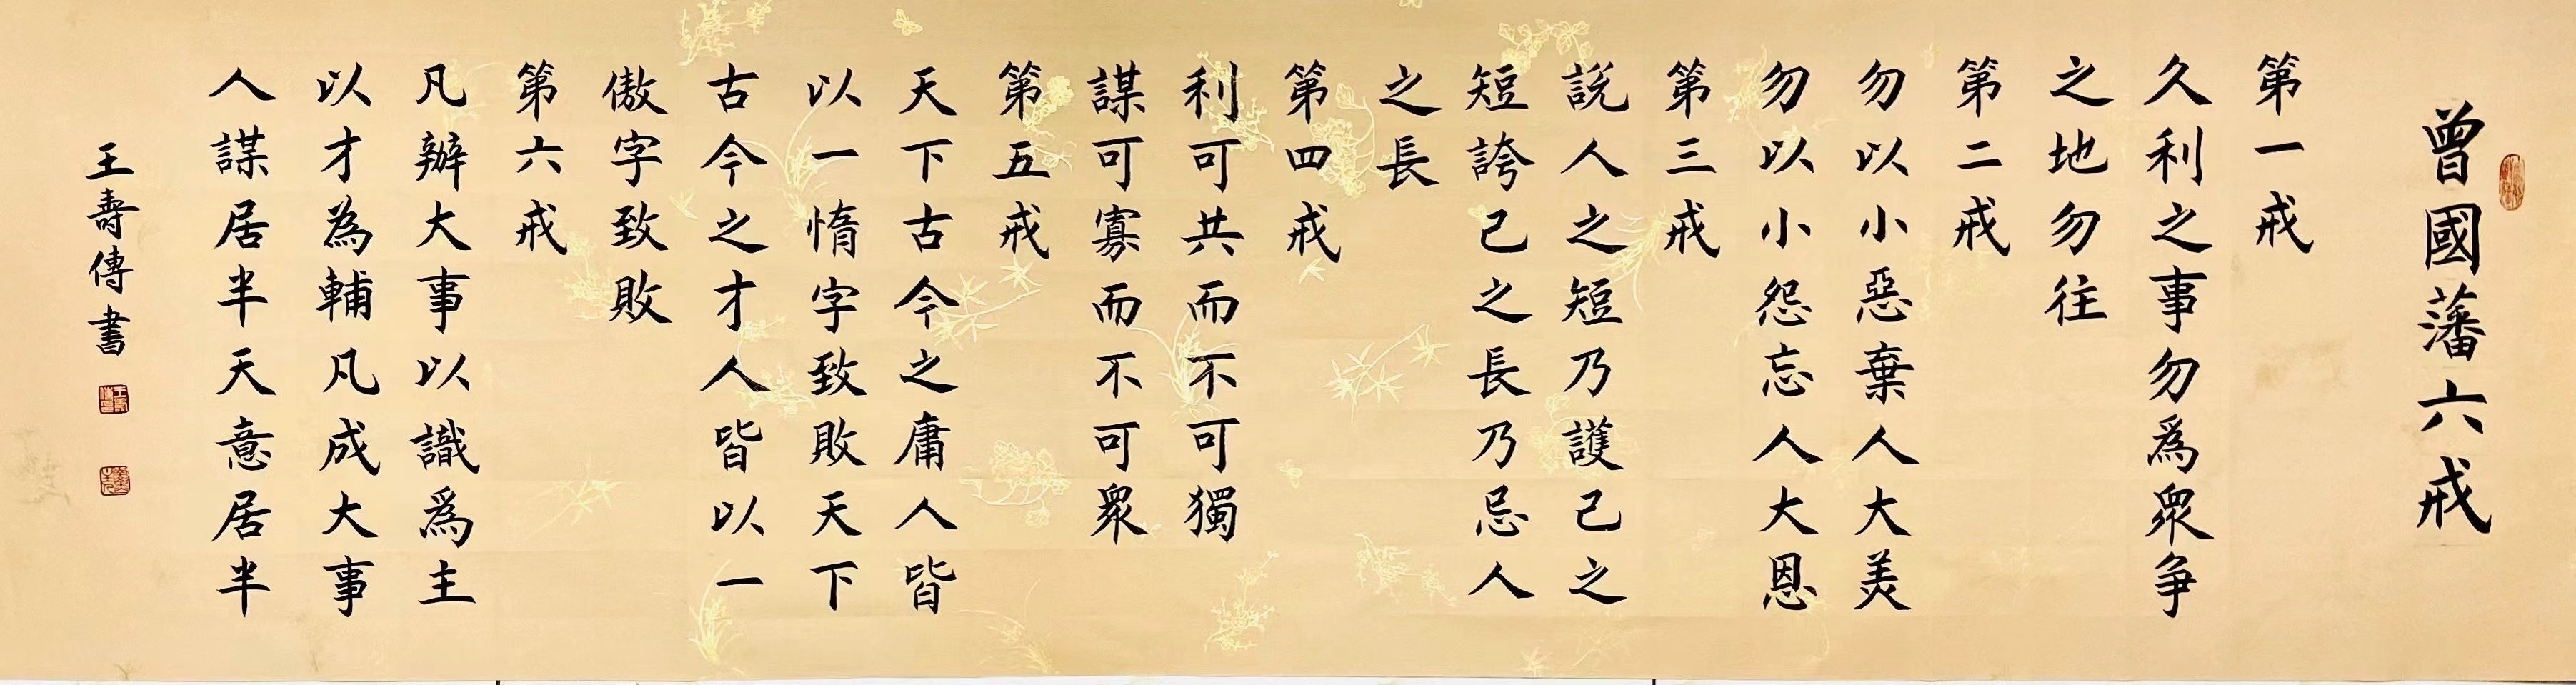 曾國藩六戒
第一戒
久利之事勿為衆争
之地勿往
第二戒
勿以小惡棄人大美
勿以小怨忘人大恩
第三戒
説人之短乃護己之
短誇己之長乃忌人
之長
第四戒
利可共而不可獨
謀可寡而不可衆
第五戒
天下古今之庸人皆
以一惰字致敗天下
古今之才人皆以一
傲字致敗
第六戒
凡辦大事以識為主
以才為輔凡成大事
人謀居半天意居半
王壽傳書